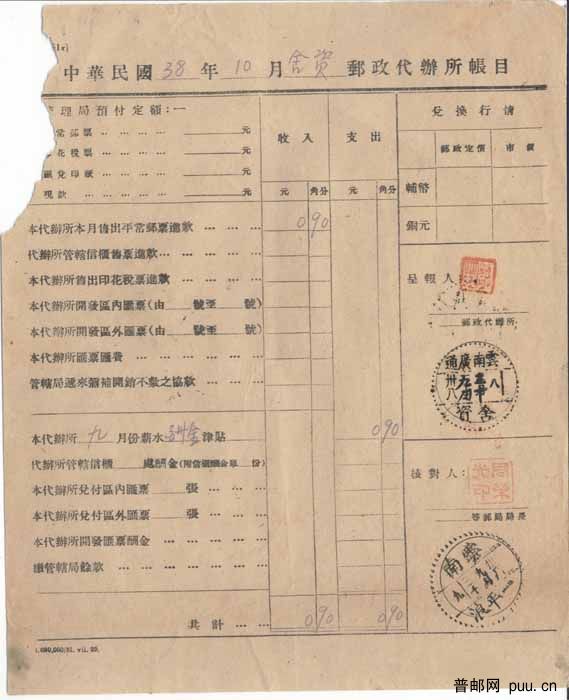 中華民國 38 年 10 月 舍資 郵政代辦所帳目
理局預付定額：一
常郵票 … … … … 元
花稅票 … … … … 元
匯兌印紙 … … … … 元
現款 … … … … 元
收入 支出
元 角分 元 角分
兌換行情
郵政定價 市價
輔幣
銅元
本代辦所本月售出平常郵票進款 … … … 0 90
代辦所管轄信櫃售票進款 … … …
本代辦所售出印花稅票進款 … … …
本代辦所開發區內匯票(由 號至 號)
本代辦所開發區外匯票(由 號至 號)
本代辦所匯票匯費 … … … …
管轄局遞來彌補開銷不敷之協款 … … …
呈報人：
郵政代辦所
雲南廣通
八
卅八
舍資
本代辦所 九 月份薪水 酬金 津貼 0 90
代辦所管轄信櫃 處酬金(附信櫃酬金單 份)
本代辦所兌付區內匯票 張 … … …
本代辦所兌付區外匯票 張 … … …
本代辦所開發匯票酬金 … … … …
繳管轄局餘款 … … … … … …
共計 … … 0 90 0 90
核對人：
周榮
印
等郵局局長
雲南
平浪
普邮网 puu.cn